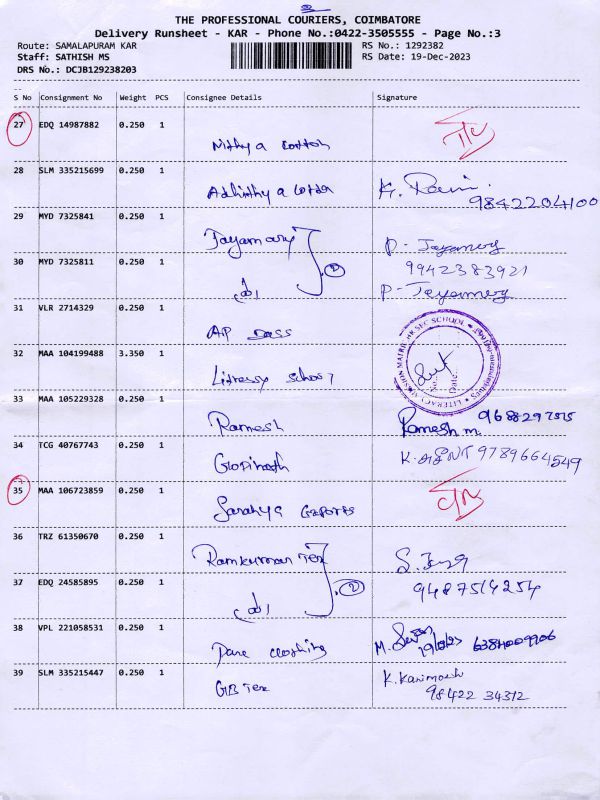 THE PROFESSIONAL COURIERS, COIMBATORE
Delivery Runsheet - KAR - Phone No.:0422-3505555 - Page No.:3
Route: SAMALAPURAM KAR
RS No.: 1292382
Staff: SATHISH MS
RS Date: 19-Dec-2023
DRS No.: DCJB129238203
S No Consignment No Weight PCS Consignee Details Signature
27 EDQ 14987882 0.250 1
Nithya cotton
28 SLM 335215699 0.250 1
Adhithya cotton K.
9842204100
29 MYD 7325841 0.250 1
Jayamary P- Jayamery
30 MYD 7325811 0.250 1 2 9942383921
P- Jayamery
31 VLR 2714329 0.250 1
AP
32 MAA 104199488 3.350 1
Literasy school
LITERACY MISSION MATRIC HR SEC SCHOOL
Date:
33 MAA 105229328 0.250 1
Ramesh Ramesh m.
34 TCG 40767743 0.250 1
Gopinath 9789664549
35 MAA 106723859 0.250 1
Exports
36 TRZ 61350670 0.250 1
Ramkumar Tex S.
37 EDQ 24585895 0.250 1 2 9487514254
38 VPL 221058531 0.250 1
clothing M.
39 SLM 335215447 0.250 1 K.
GB Tex 98422 34312